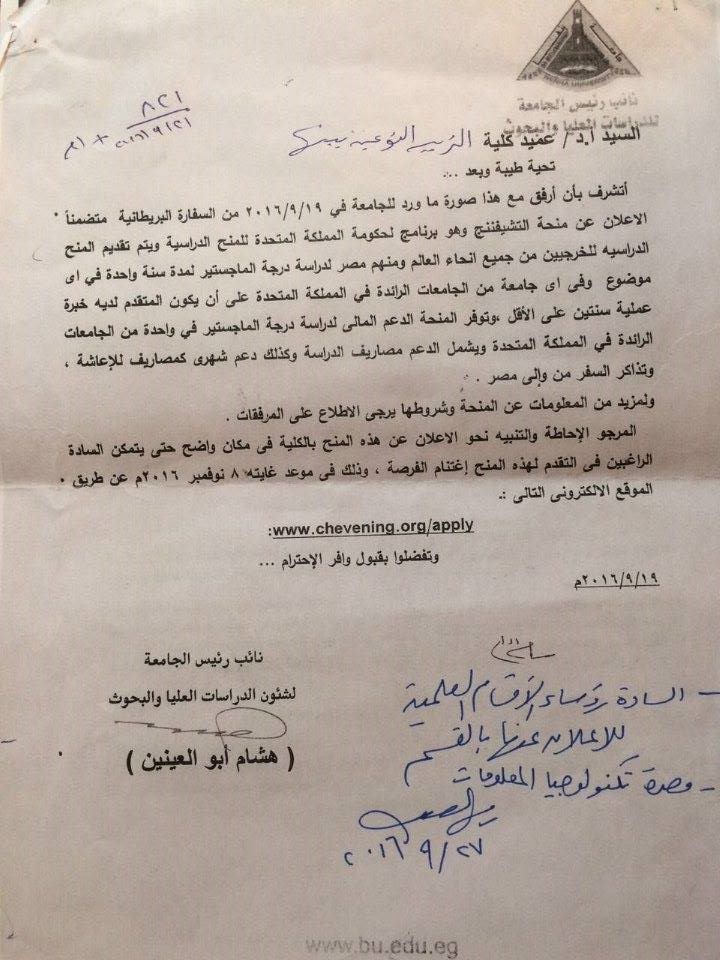 نائب رئيس الجامعة
للدراسات العليا والبحوث
٨٢١
٢٠١٦/٩/٢١
السيد أ.د/ عميد كلية التربية النوعية ببنها
تحية طيبة وبعد ...
أتشرف بأن أرفق مع هذا صورة ما ورد للجامعة في ٢٠١٦/٩/١٩ من السفارة البريطانية متضمناً
الاعلان عن منحة التشيفننج وهو برنامج لحكومة المملكة المتحدة للمنح الدراسية ويتم تقديم المنح
الدراسيه للخرجيين من جميع انحاء العالم ومنهم مصر لدراسة درجة الماجستير لمدة سنة واحدة في اى
موضوع وفى اى جامعة من الجامعات الرائدة في المملكة المتحدة على أن يكون المتقدم لديه خبرة
عملية سنتين على الأقل ،وتوفر المنحة الدعم المالى لدراسة درجة الماجستير في واحدة من الجامعات
الرائدة في المملكة المتحدة ويشمل الدعم مصاريف الدراسة وكذلك دعم شهرى كمصاريف للإعاشة ،
وتذاكر السفر من وإلى مصر .
ولمزيد من المعلومات عن المنحة وشروطها يرجى الاطلاع على المرفقات .
المرجو الإحاطة والتنبيه نحو الاعلان عن هذه المنح بالكلية فى مكان واضح حتى يتمكن السادة
الراغبين فى التقدم لهذه المنح إغتنام الفرصة ، وذلك فى موعد غايته ٨ نوفمبر ٢٠١٦م عن طريق
الموقع الالكترونى التالى :.
:www.chevening.org/apply
وتفضلوا بقبول وافر الإحترام ...
٢٠١٦/٩/١٩م
نائب رئيس الجامعة
لشئون الدراسات العليا والبحوث
( هشام أبو العينين )
- السادة رؤساء الأقسام العلمية
للاعلان عنها بالقسم
- وحدة تكنولوجيا المعلومات
٢٠١٦/٩/٢٧
www.bu.edu.eg